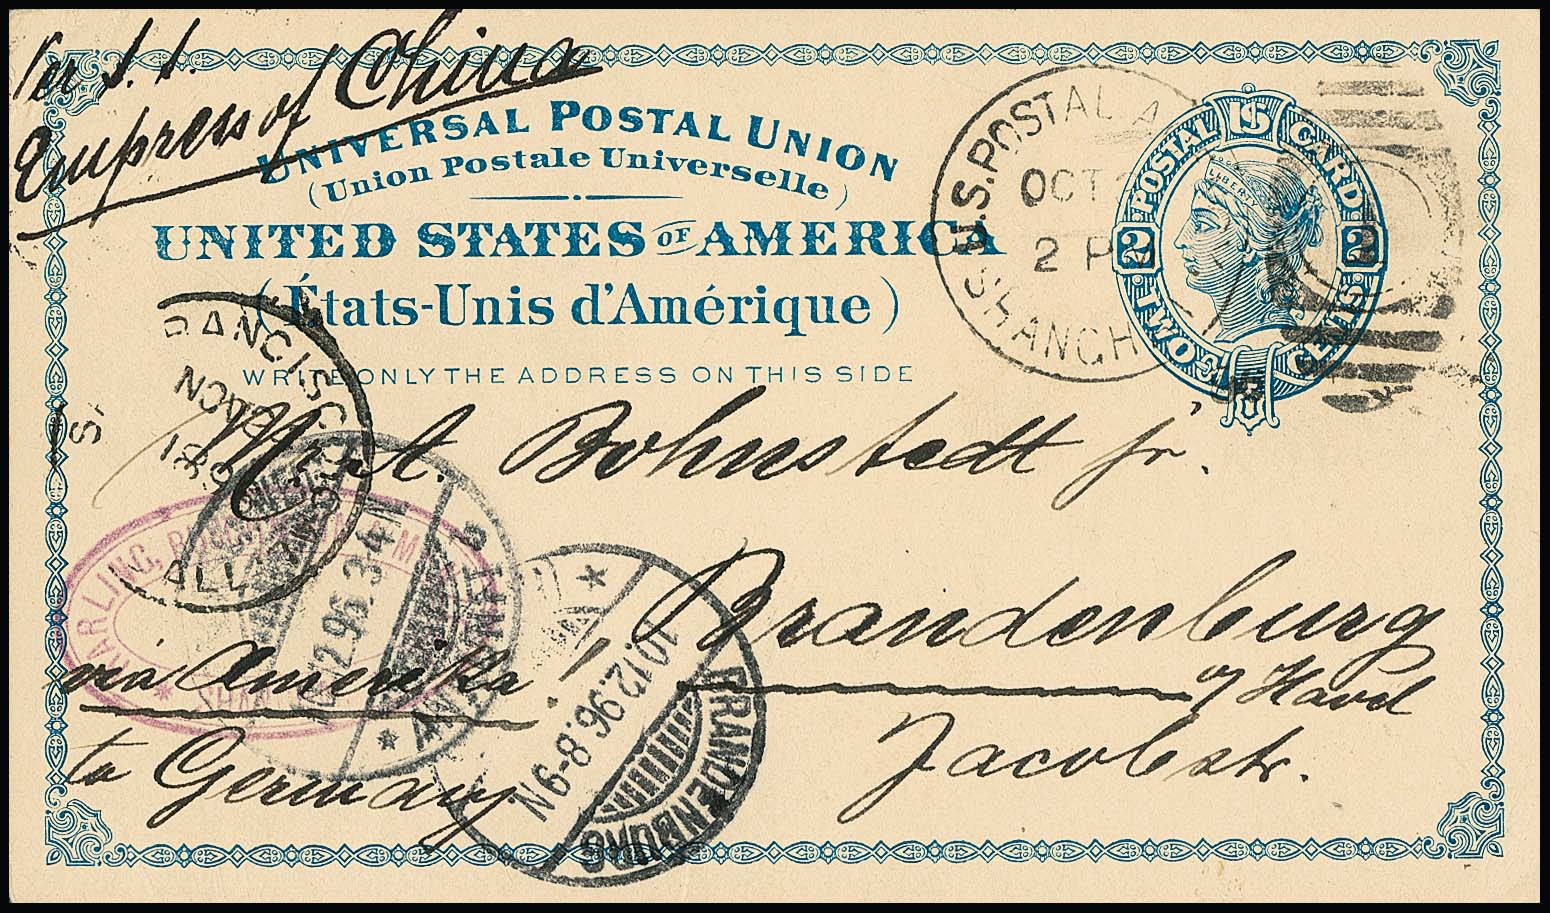 Per S. S.
Empress of China
UNIVERSAL POSTAL UNION
(Union Postale Universelle)
UNITED STATES OF AMERICA
(États-Unis d'Amérique)
WRITE ONLY THE ADDRESS ON THIS SIDE
U.S. POSTAL A
OCT
2 PM
SHANGH
US
POSTAL CARD
LIBERTY
2 2
TWO CENTS
A. Bohnstedt jr.
Brandenburg
a/ Havel
Jacobstr.
via Amerika!
to Germany
RANCISCO
ALL
12.96.3-4
10.12.96.8-9N.
BRANDENBURG